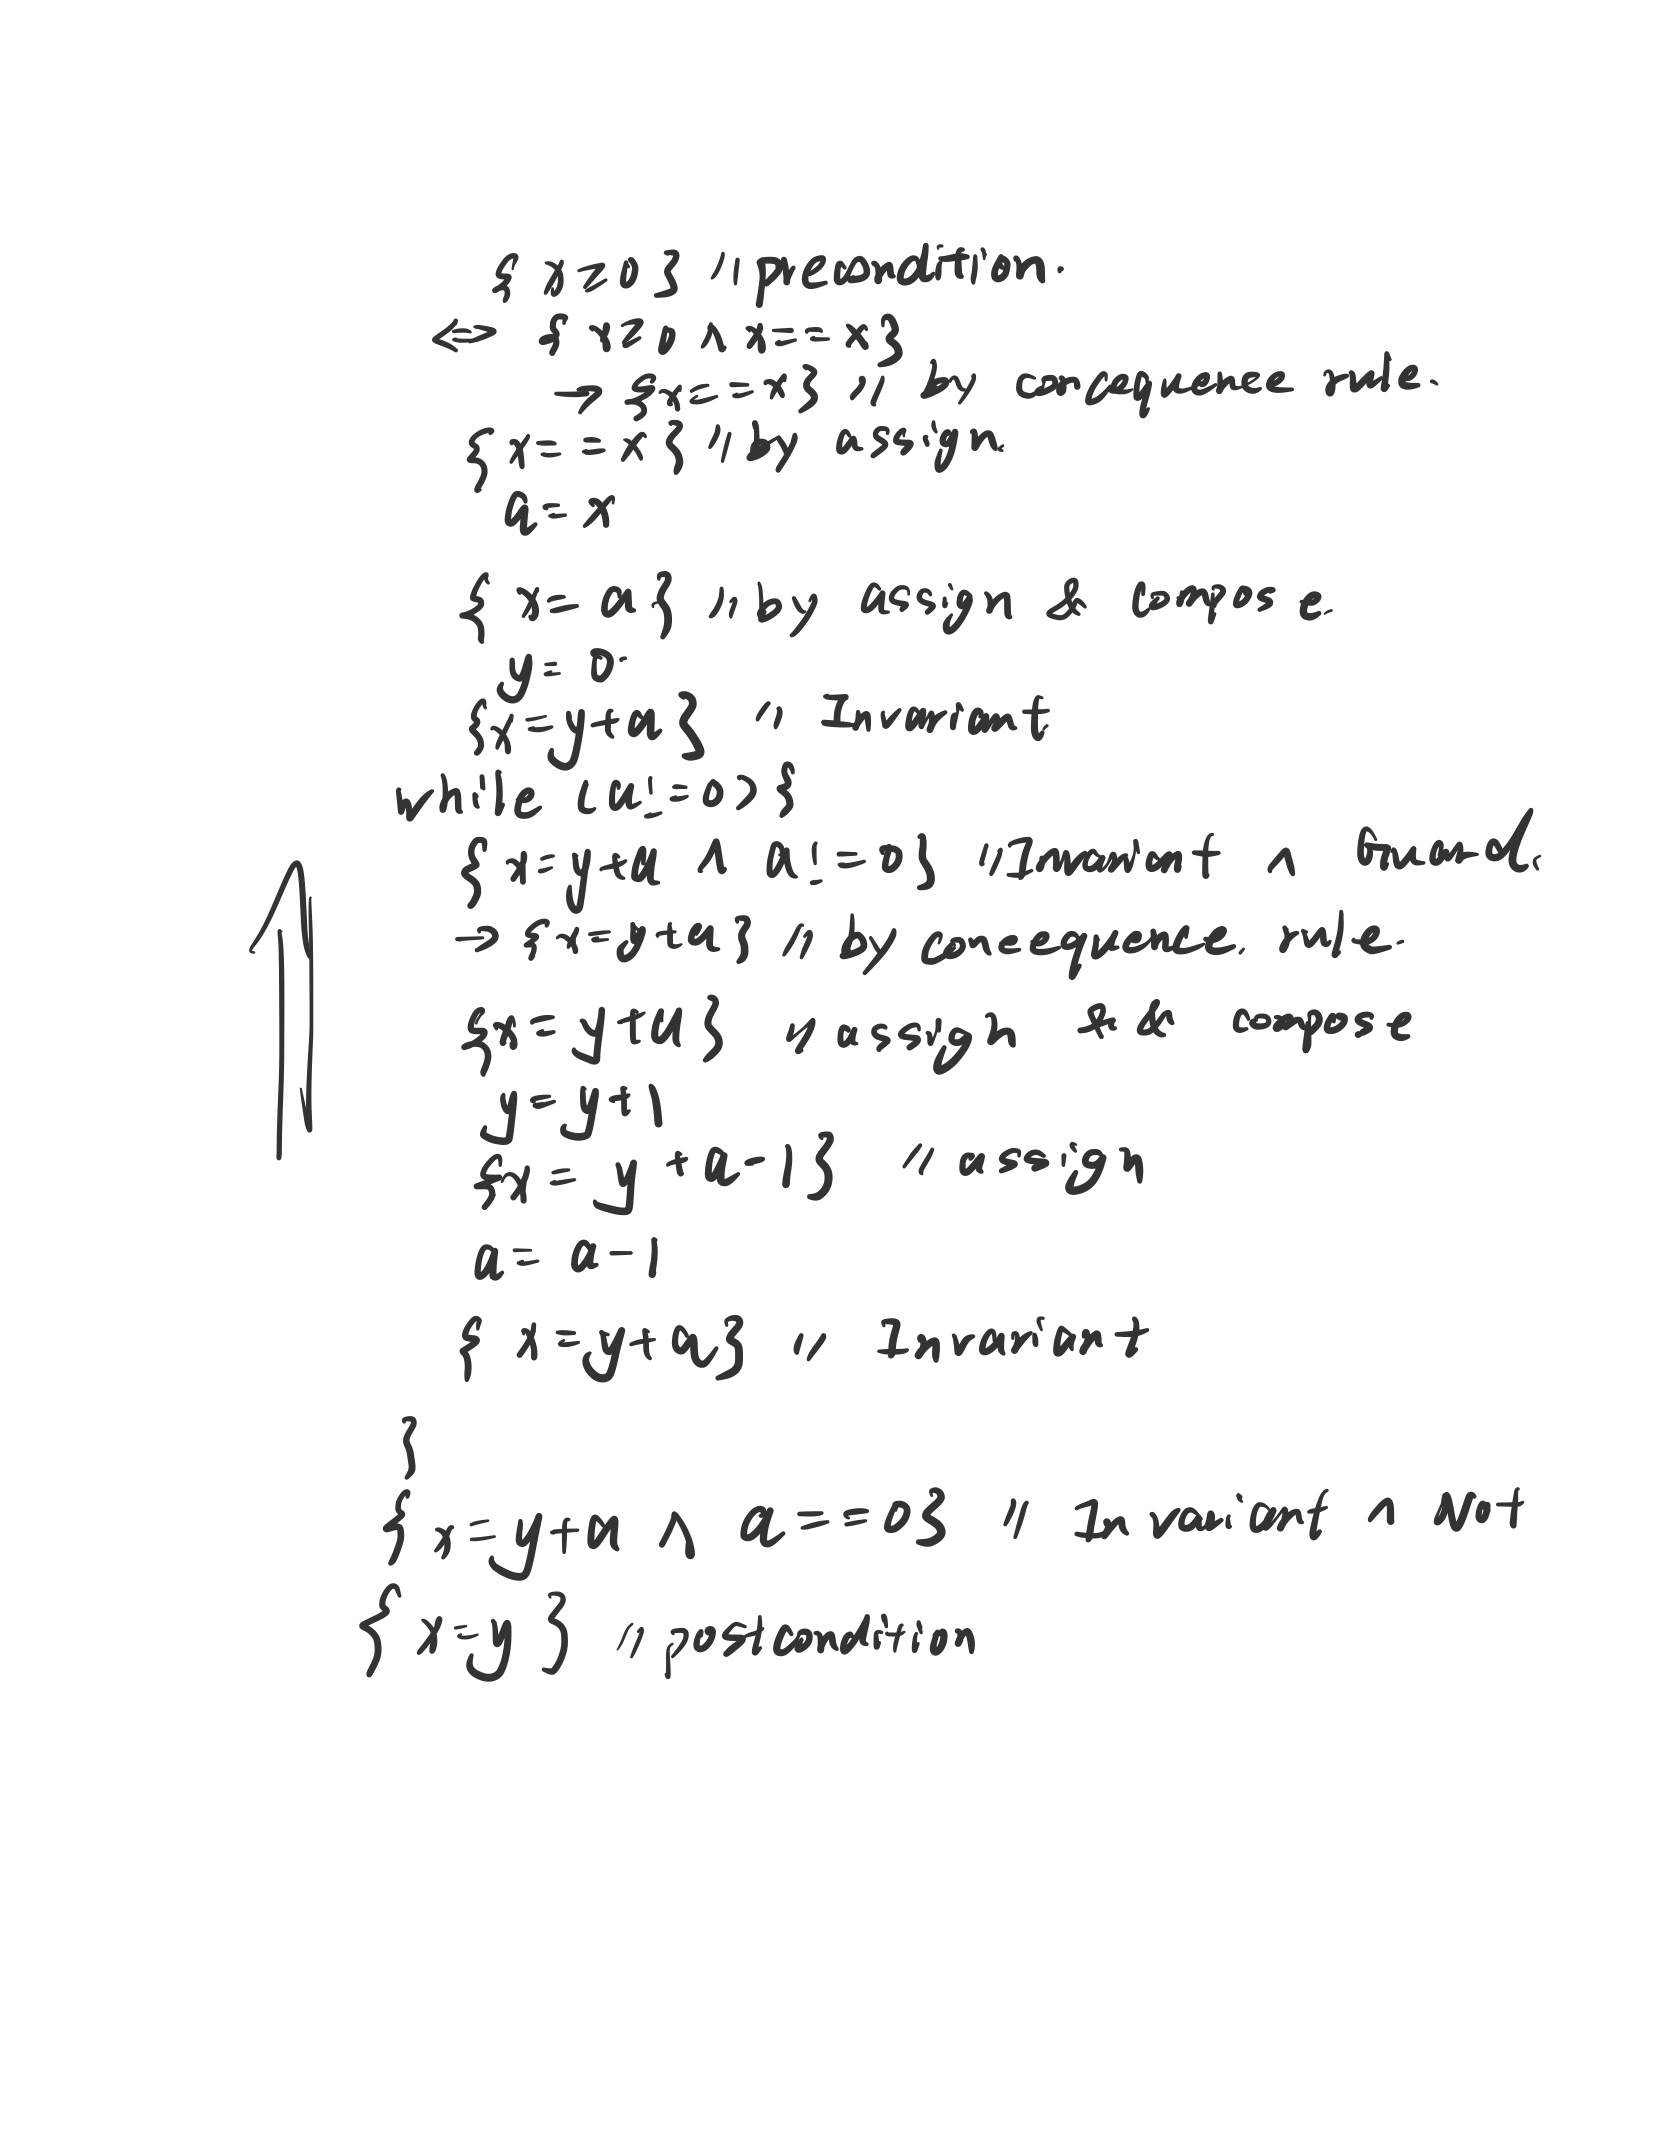 { x≥0 } // precondition.
⇔ { x≥0 ∧ x==x}
→ {x==x} // by concequence rule.
{ x==x } // by assign.
a=x
{ x=a } // by assign & compose.
y=0
{x=y+a} // Invariant
while (a!=0) {
{ x=y+a ∧ a!=0 } // Invariant ∧ Guard.
→ {x=y+a} // by concequence. rule.
{x=y+a} // assign && compose
y=y+1
{x=y+a-1} // assign
a=a-1
{ x=y+a} // Invariant
}
{ x=y+a ∧ a==0} // Invariant ∧ Not
{ x=y } // postcondition